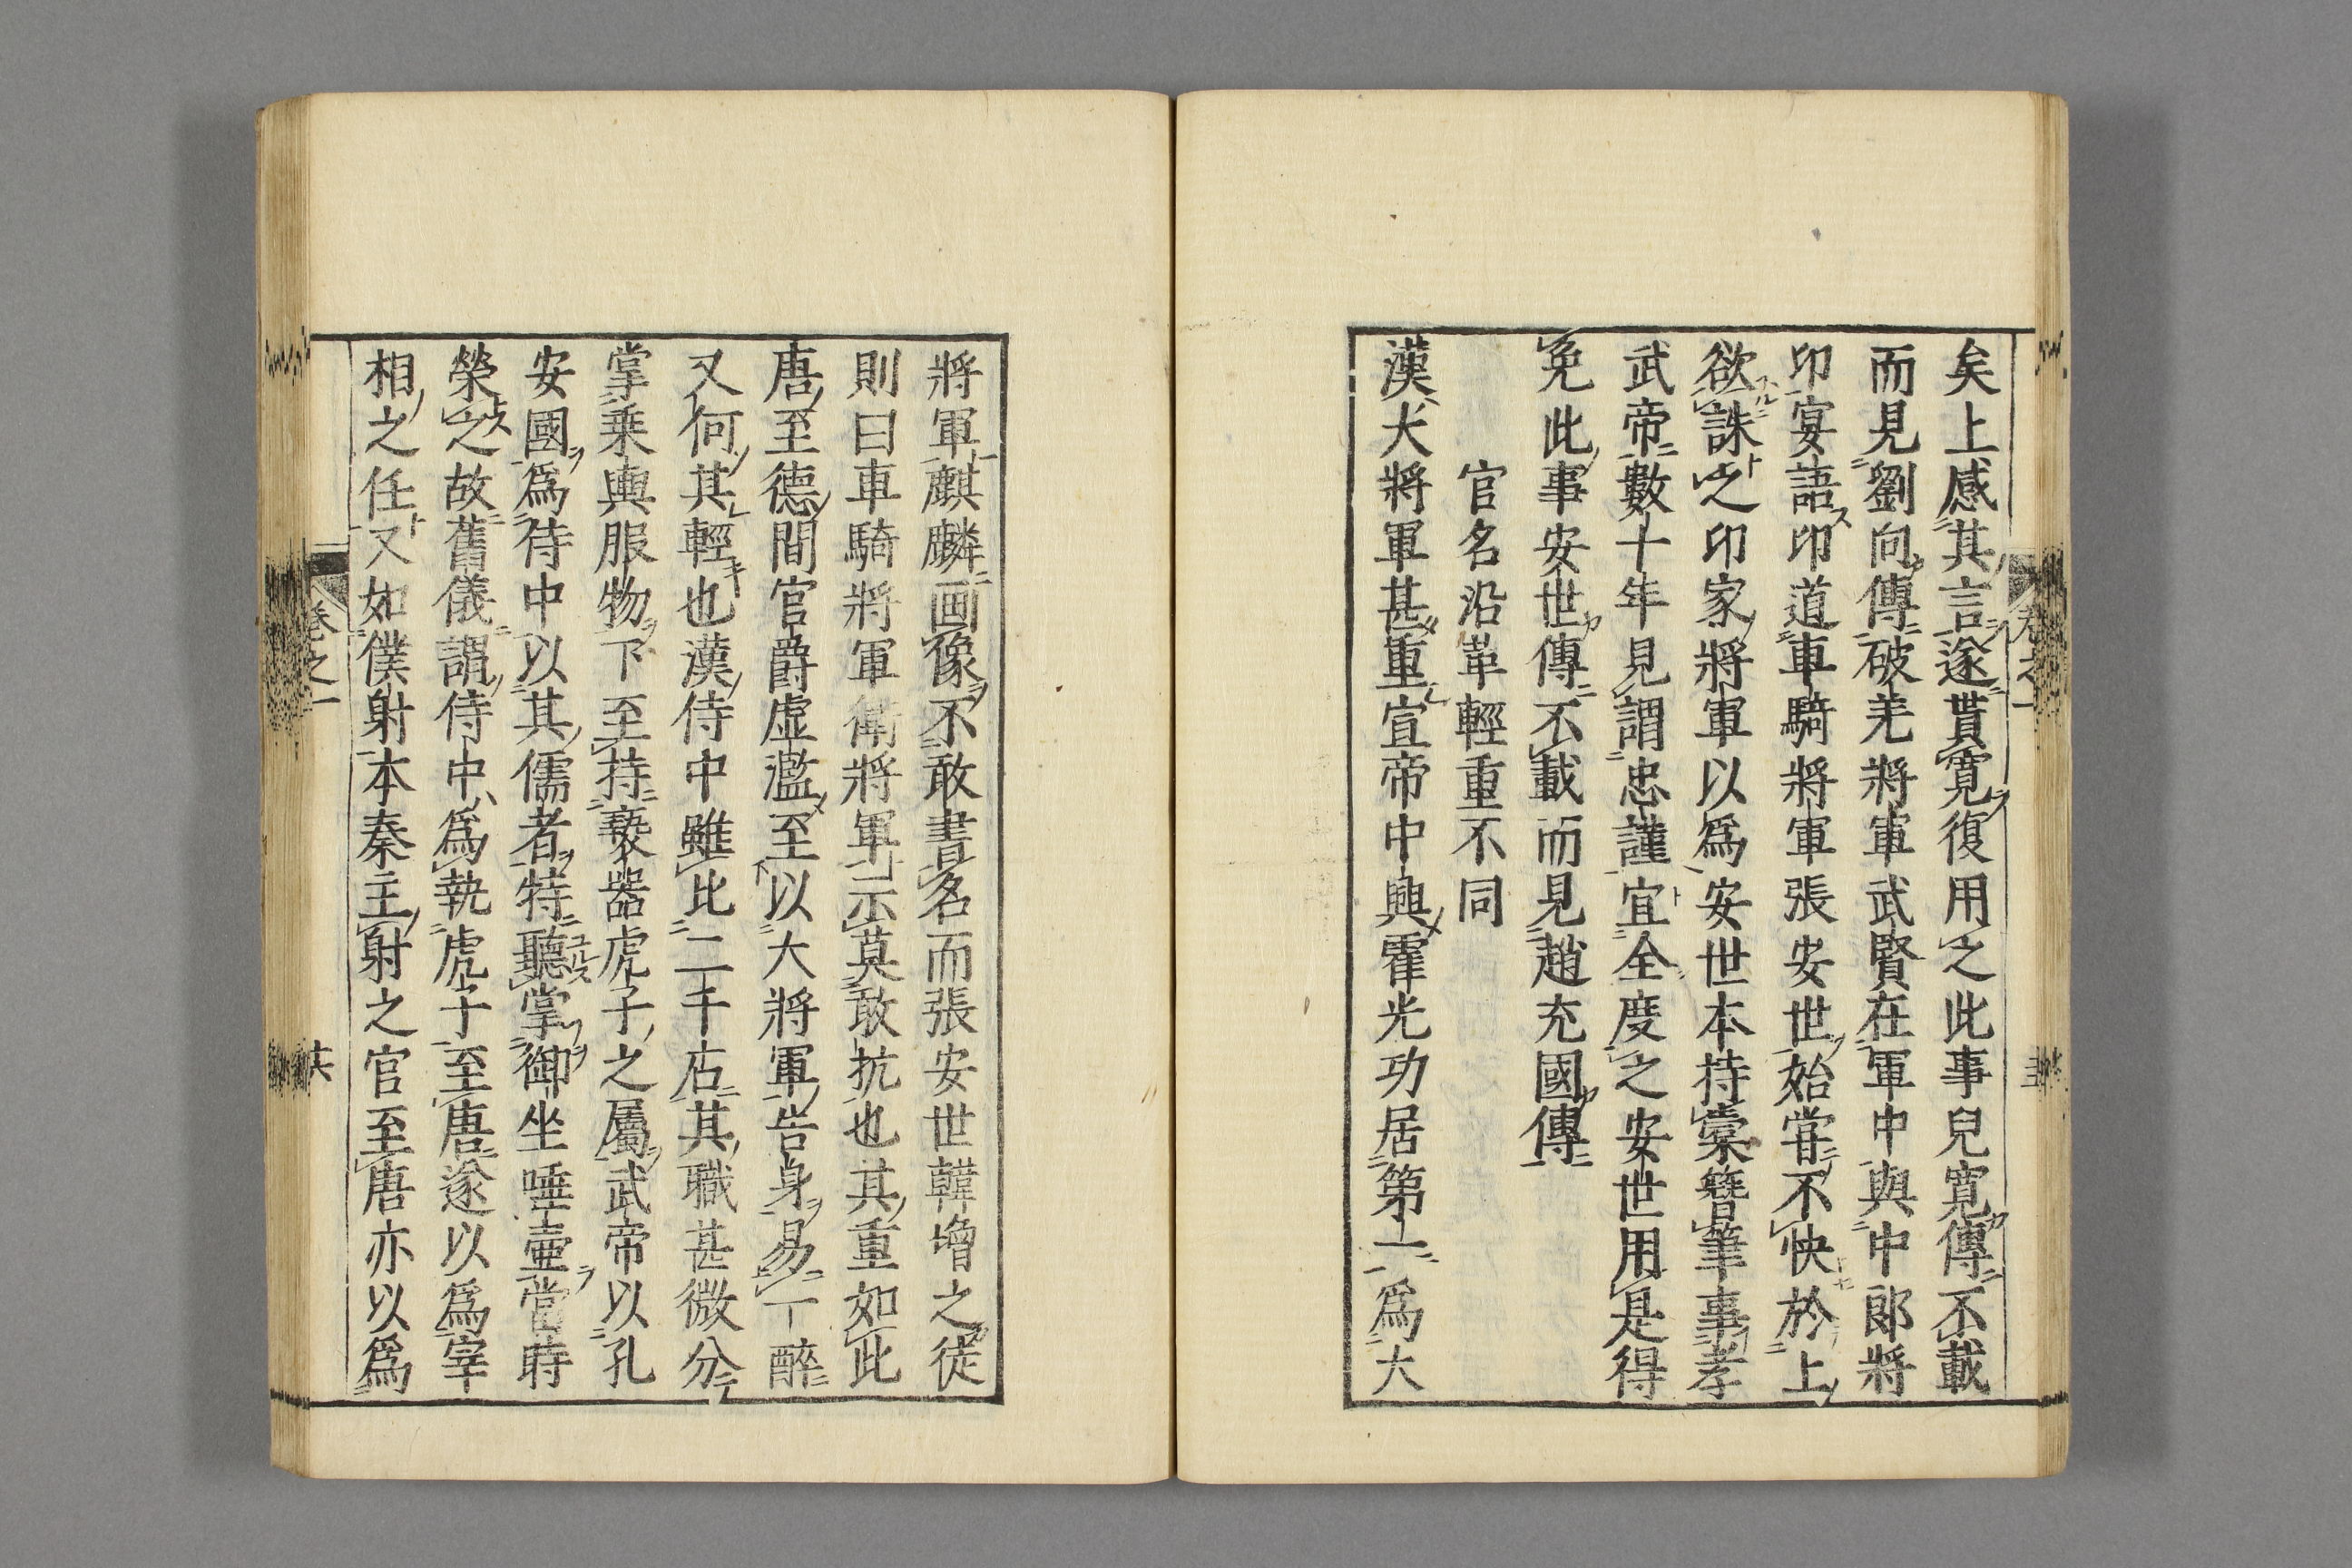 矣上感其言遂貰寬復用之此事兒寬傳不載
而見劉向傳破羌將軍武賢在軍中與中郎將
卬宴語卬道車騎將軍張安世始甞不快於上
欲誅之卬家將軍以爲安世本持橐簪筆事孝
武帝數十年見謂忠謹宜全度之安世用是得
免此事安世傳不載而見趙充國傳
官名沿革輕重不同
漢大將軍甚重宣帝中興霍光功居第一爲大
將軍麒麟画像不敢書名而張安世韓增之徒
則曰車騎將軍衛將軍示莫敢抗也其重如此
唐至德間官爵虚濫至以大將軍告身易一醉
又何其輕也漢侍中雖比二千石其職甚微分
掌乗輿服物下至持褻器虎子之屬武帝以孔
安國爲侍中以其儒者特聽掌御坐唾壷當時
榮之故舊儀謂侍中爲執虎子至唐遂以爲宰
相之任又如僕射本秦主射之官至唐亦以爲
卷之一